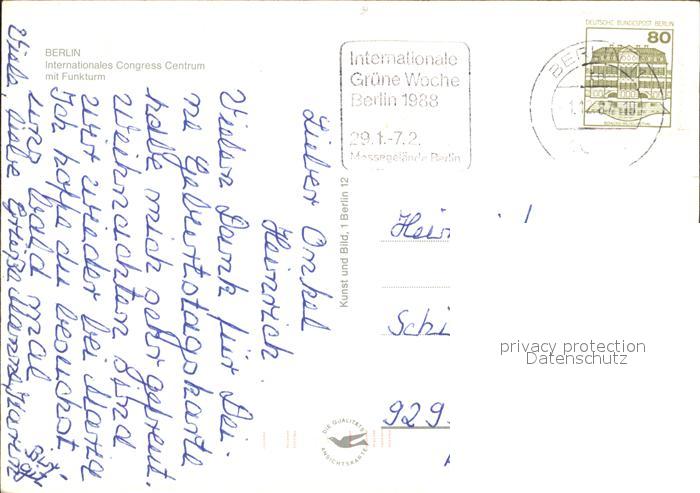 BERLIN
Internationales Congress Centrum
mit Funkturm
Internationale
Grüne Woche
Berlin 1988
29.1.-7.2.
Messegelände Berlin
DEUTSCHE BUNDESPOST BERLIN
80
BERLIN
Lieber Onkel
Heinrich.
Vielen Dank für Dei-
ne Geburtstagskarte
habe mich sehr gefreut.
Weihnachten sind
wir wieder bei Maria
Ich hoffe du besuchst
uns bald mal
Viele liebe Grüße
Kunst und Bild, 1 Berlin 12
DIE QUALITÄTS
ANSICHTSKARTE
Hein
Schi
929
privacy protection
Datenschutz